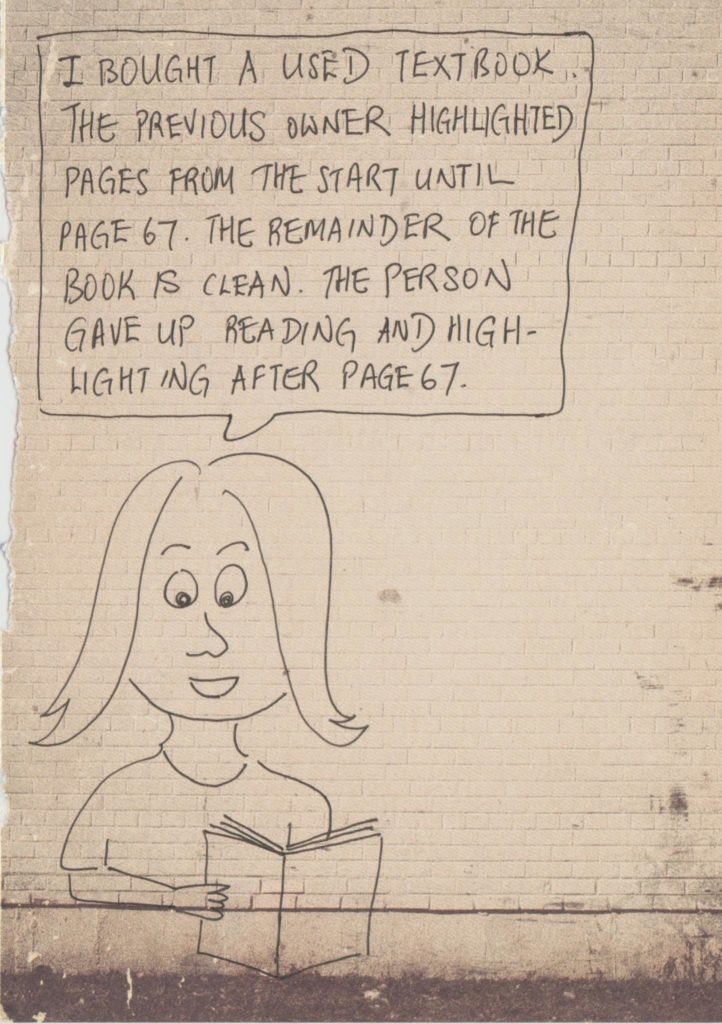 I BOUGHT A USED TEXTBOOK.
THE PREVIOUS OWNER HIGHLIGHTED
PAGES FROM THE START UNTIL
PAGE 67. THE REMAINDER OF THE
BOOK IS CLEAN. THE PERSON
GAVE UP READING AND HIGH-
LIGHTING AFTER PAGE 67.